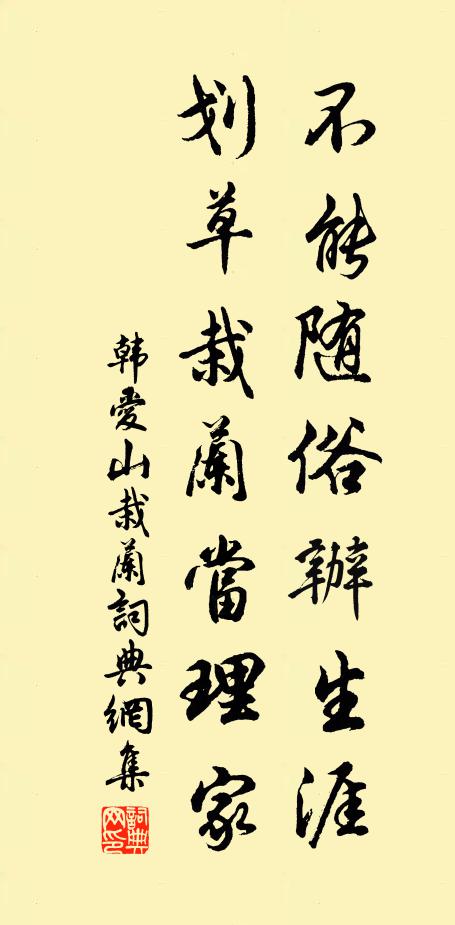 不能随俗辦生涯
刬草栽蘭當理家
韓愛山栽蘭詞典網集
詞典
网印